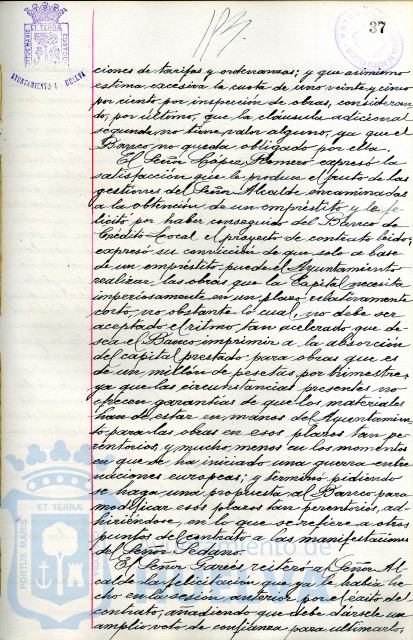 37
AYUNTAMIENTO HUELVA
ciones de tarifas y ordenanzas; y que asimismo
estima excesiva la cuota de uno veinte y cinco
por ciento por inspección de obras, consideran-
do, por último, que la cláusula adicional
segunda no tiene valor alguno, ya que el
Banco no queda obligado por ella.
El Señor López Romero expresó la
satisfacción que le produce el fruto de las
gestiones del Señor Alcalde encaminadas
a la obtención de un empréstito, y le fe-
licitó por haber conseguido del Banco de
Crédito Local el proyecto de contrato leído;
expresó su convicción de que solo a base
de un empréstito puede el Ayuntamiento
realizar las obras que la Capital necesita
imperiosamente en un plazo relativamente
corto, no obstante lo cual, no debe ser
aceptado el ritmo tan acelerado que de-
sea el Banco imprimir a la absorción
del capital prestado para obras que es
de un millón de pesetas por trimestre,
ya que las circunstancias presentes no
ofrecen garantías de que los materiales
han de estar en manos del Ayuntamien-
to para las obras en esos plazos tan pe-
rentorios, y mucho menos en los momentos
en que se ha iniciado una guerra entre
naciones europeas; y terminó pidiendo
se haga una propuesta al Banco para
modificar esos plazos tan perentorios, ad-
hiriéndose, en lo que se refiere a otros
puntos del contrato a las manifestaciones
del Señor Sedano.
El Señor Garcés reiteró al Señor Al-
calde la felicitación que ya le había he-
cho en la sesión anterior por el éxito del
contrato, añadiendo que debe dársele un
amplio voto de confianza para ultimarlo,
PORTUS MARIS ET TERRAE